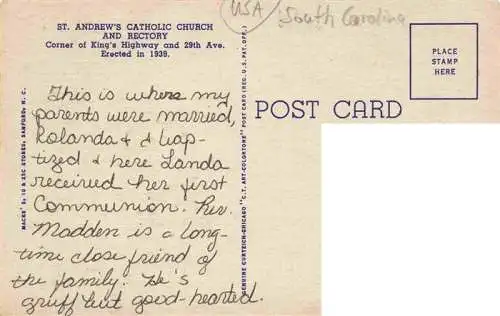 ST. ANDREW'S CATHOLIC CHURCH
AND RECTORY
Corner of King's Highway and 29th Ave.
Erected in 1939.
USA
South Carolina
PLACE
STAMP
HERE
POST CARD
This is where my
parents were married,
Rolanda & I bap-
tized & here Landa
received her first
Communion. Rev.
Madden is a long-
time close friend of
the family. He's
gruff but good-hearted.
MACKS 5, 10 & 25C STORES, SANFORD, N. C.
GENUINE CURTEICH-CHICAGO "C.T. ART-COLORTONE" POST CARD (REG. U.S. PAT. OFF.)